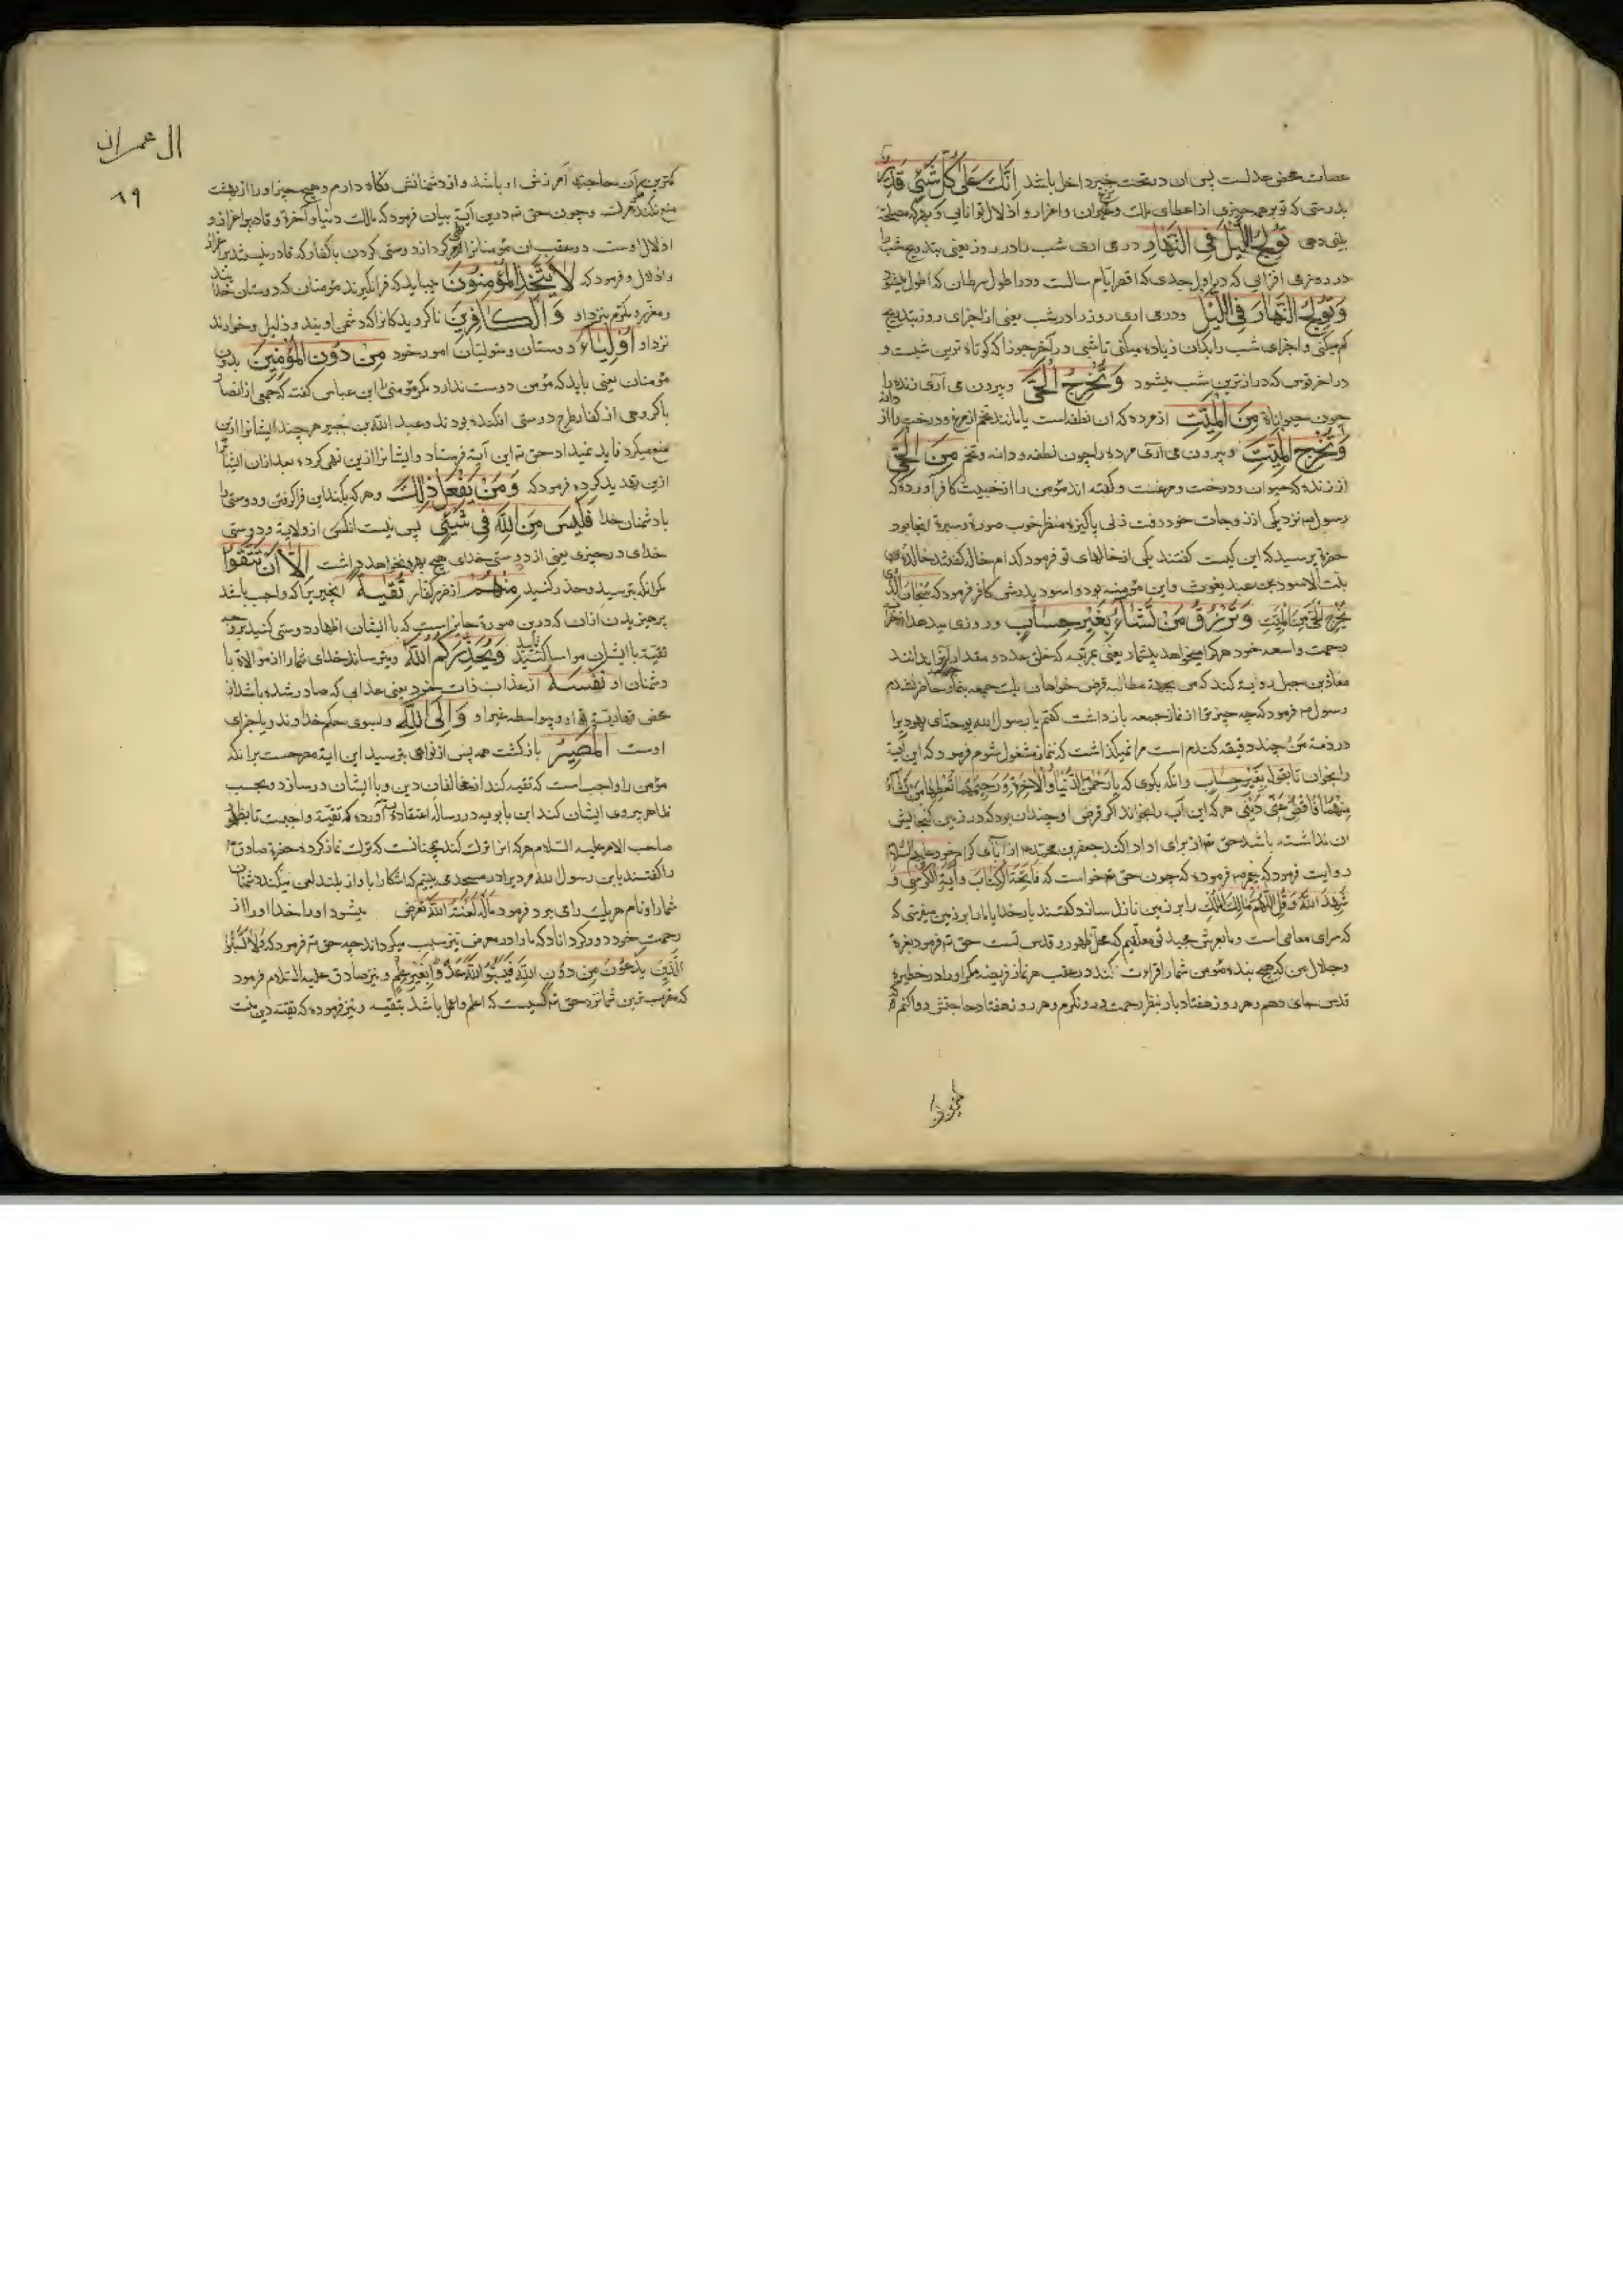 عصات محض عدلست پس ان در تحت خیر داخل باشد اِنَّكَ عَلٰى كُلِّ شَيْئٍ قَدِيرٌ
بدرستی که تو بر همه چیزی از اعطای ملك و حرمان و اعزاز و اذلال توانایی و بهرکه مصلحة
تُولِجُ اللَّيْلَ فِى النَّهَارِ در می اری شب را در روز یعنی بتدریج شب را
در روز می افزایی که در اول جدی که اقصر ایام سالست در اطول سرطان که اطول
وَتُولِجُ النَّهَارَ فِى اللَّيْلِ و در می اری روز را در شب یعنی از اجزای روز بتدریج
کم میکنی و اجزای شب را بکان زیاده میکنی تا شبی در آخر جوزا که کوتاه ترین شبست و
در اخر قوس که درازترین شب میشود وَتُخْرِجُ الْحَىَّ و بیرون می آری زنده را
چون حیوانات مِنَ الْمَيِّتِ از مرده که ان نطفه است یا مانند تخم از مرغ و درخت را از دانه
وَتُخْرِجُ الْمَيِّتَ و بیرون می آری مرده را چون نطفه و دانه و تخم مِنَ الْحَىِّ
از زنده که حیوان و درخت و مرغست و گفته اند مؤمن را از کافر آورده که
رسول نزد یکی از زوجات خود رفت زنی پاکیزه منظر خوب صورة و سیرة انجا بود
حضرة پرسید که این کیست گفتند یکی از خالهای تو فرمود کدام خال گفتند خالده
بنت الاسود بن عبد یغوث و این مؤمنه بود و اسود پدرش کافر فرمود که سُبْحَانَ الَّذِى
يُخْرِجُ الْحَىَّ مِنَ الْمَيِّتِ وَتَرْزُقُ مَنْ تَشَاءُ بِغَيْرِ حِسَابٍ و روزی میدهد
برحمت واسعه خود هرکرا میخواهد بیشمار یعنی بمرتبه که خلق عدد و مقدار نداند
معاذ بن جبل روایة کند که من بجهة مطالبه قرض خواهان یك جمعه بنماز حاضر نشدم
رسول فرمود که چه چیز ترا از نماز جمعه بازداشت گفتم یا رسول الله یوحنای یهودیرا
در ذمه من چند دقیقه کندم است مرا نمیگذاشت که بنماز مشغول شوم فرمود که این آیة
را بخوان تا بقوله بِغَيْرِ حِسَابٍ وانگه بگوی که يَا رَحْمٰنَ الدُّنْيَا وَالْاٰخِرَةِ وَرَحِيمَهُمَا تُعْطِى مِنْهُمَا مَنْ تَشَاءُ
فَاقْضِ عَنِّى دَيْنِى هر که این آیه را بخواند اگر قرض او چندان بود که در زمین گنجایش
ان نداشته باشد حق تع از برای او ادا کند جعفر بن محمد از آبای کرام خود علیهم السلام
روایت فرمود که پیغمبر فرموده که چون حق تع خواست که فَاتِحَةُ الْكِتَابِ وَاٰيَةُ الْكُرْسِى وَ
شَهِدَ اللّٰهُ وَقُلِ اللّٰهُمَّ مَالِكَ الْمُلْكِ را بر زمین نازل سازد گفتند بار خدایا ما را بر زمین میفرستی که
که سرای معاصی است و ما بعرش مجید تو معلقیم که محل طهور و قدس تست حق تع فرمود بعزة
و جلال من که هیچ بنده مؤمن شما را قراءت نکند در عقب هر نماز فریضه مگر او را در حظیره
قدس جای دهم و هر روز هفتاد بار بنظر رحمت درو نگرم و هر روز هفتاد حاجتش روا کنم که
ال عمران
۸۹
کمترین آن حاجة آمرزش او باشد و از دشمنانش نگاه دارم و هیچ چیز او را از بهشت
منع نکند و چون حق تع درین آیة بیان فرمود که مالك دنیا و آخرة و قادر بر اعزاز و
اذلال اوست در عقب ان مؤمنانرا نهی کرد از دوستی کردن با کفار که قادر نیستند بر اعزاز
و اذلال و فرمود که لَا يَتَّخِذِ الْمُؤْمِنُونَ میباید که فرانگیرند مؤمنان که دوستان خدا
و مکرم بنزد او الْكَافِرِينَ ناگرویدگانرا که دشمن او یند و ذلیل و خوارند
نزد او اَوْلِيَاءَ دوستان و متولیان امور خود مِنْ دُونِ الْمُؤْمِنِينَ بدون
مؤمنان یعنی باید که مؤمن دوست ندارد مگر مؤمن را ابن عباس گفته که جمعی از انصار
با گروهی از کفار طرح دوستی افکنده بودند و عبد الله بن جبیر هر چند ایشانرا ازین
منع میکرد فایده نمیداد حق تع این آیة فرستاد و ایشانرا ازین نهی کرد و بعد از ان ایشانرا
ازین تهدید کرده فرمود که وَمَنْ يَفْعَلْ ذٰلِكَ و هر که بکند این فراگرفتن و دوستی را
با دشمنان خدا فَلَيْسَ مِنَ اللّٰهِ فِى شَيْئٍ پس نیست انکس از ولایة و دوستی
خدای در چیزی یعنی از دوستی خدای هیچ بهره نخواهد داشت اِلَّا اَنْ تَتَّقُوا
مگر انکه بترسید و حذر کنید مِنْهُمْ از ضرر کفار تُقٰيةً انچیزیرا که واجب باشد
پرهیزیدن از ان که درین صورة جایز است که با ایشان اظهار دوستی کنید
تقیة با ایشان مواسا کنید وَيُحَذِّرُكُمُ اللّٰهُ و میترساند خدای شما را از موالاة با
دشمنان او نَفْسَهُ از عذاب ذات خود یعنی عذابی که صادر شده باشد از
محض قهاریت او و بواسطه غیر او وَاِلَى اللّٰهِ و بسوی حکم خداوند و یا جزای
اوست الْمَصِيرُ بازگشت همه پس از نواهی بترسید این آیة مصرحست برانکه
مؤمن را واجب است که تقیه کند از مخالفان دین و با ایشان درسازد و بحسب
ظاهر پیروی ایشان کند ابن بابویه در رساله اعتقادیه آورده که تقیة واجبست تا بظهور
صاحب الامر علیه السلام هر که انرا ترك کند چنانست که ترك نماز کرده حضرة صادق
را گفتند یا بن رسول الله مردیرا در مسجد می بینم که اشکارا باواز بلند لعن میکند دشمنان
شما را و نام هر یك را می برد فرمود مَالَهُ لَعَنَهُ اللّٰهُ تعرض میشود او را خدا او را از
رحمت خود دور گرداناد که ما را در معرض تیز سبب میگرداند چه حق تع فرمود که وَلَا تَسُبُّوا
الَّذِينَ يَدْعُونَ مِنْ دُونِ اللّٰهِ فَيَسُبُّوا اللّٰهَ عَدْوًا بِغَيْرِ عِلْمٍ و نیز صادق علیه السلام فرمود
که مقرب ترین شما نزد حق تع کسیست که اعلم و اعمل باشد بتقیه و نیز فرموده که تقیة دین منست